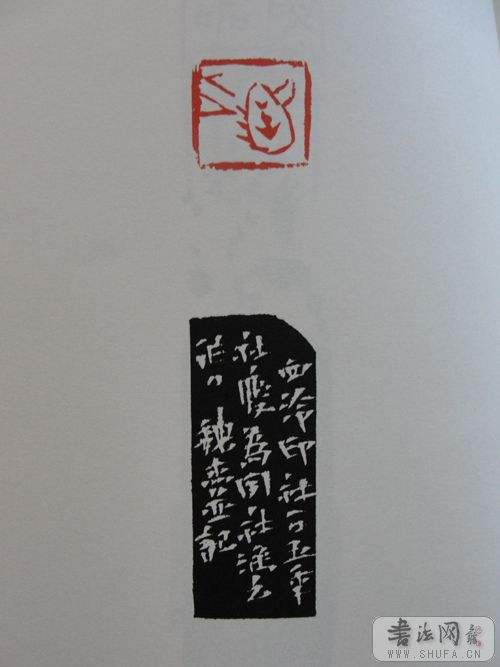 西泠印社百五年
社慶為同社
魏杰並記
書法网
WWW.SHUFA.CN